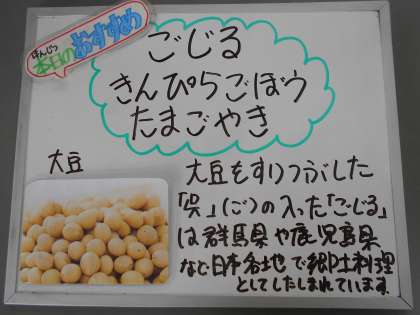 ほんじつ
本日のおすすめ
ごじる
きんぴらごぼう
たまごやき
大豆
大豆をすりつぶした
「呉」(ご)の入った「ごじる」
は群馬県や鹿児島県
など日本各地で郷土料理
としてしたしまれています。